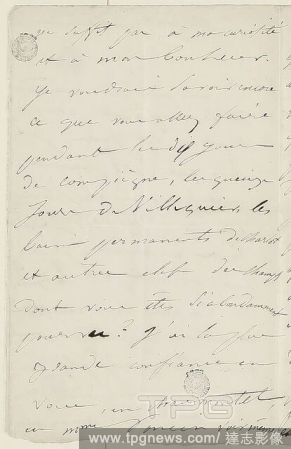 ne suffit pas à ma curiosité
et à mon bonheur.
Je voudrais savoir encore
ce que vous allez faire
pendant les dix jours
de compiègne, les quinze
jours de Villequier, les
permanents
et autres clefs des champs
dont vous êtes si abondamment
pourvu ? J'ai la plus
grande confiance en
vous,
en mon
TPG
www.tpgnews.com / 達志影像